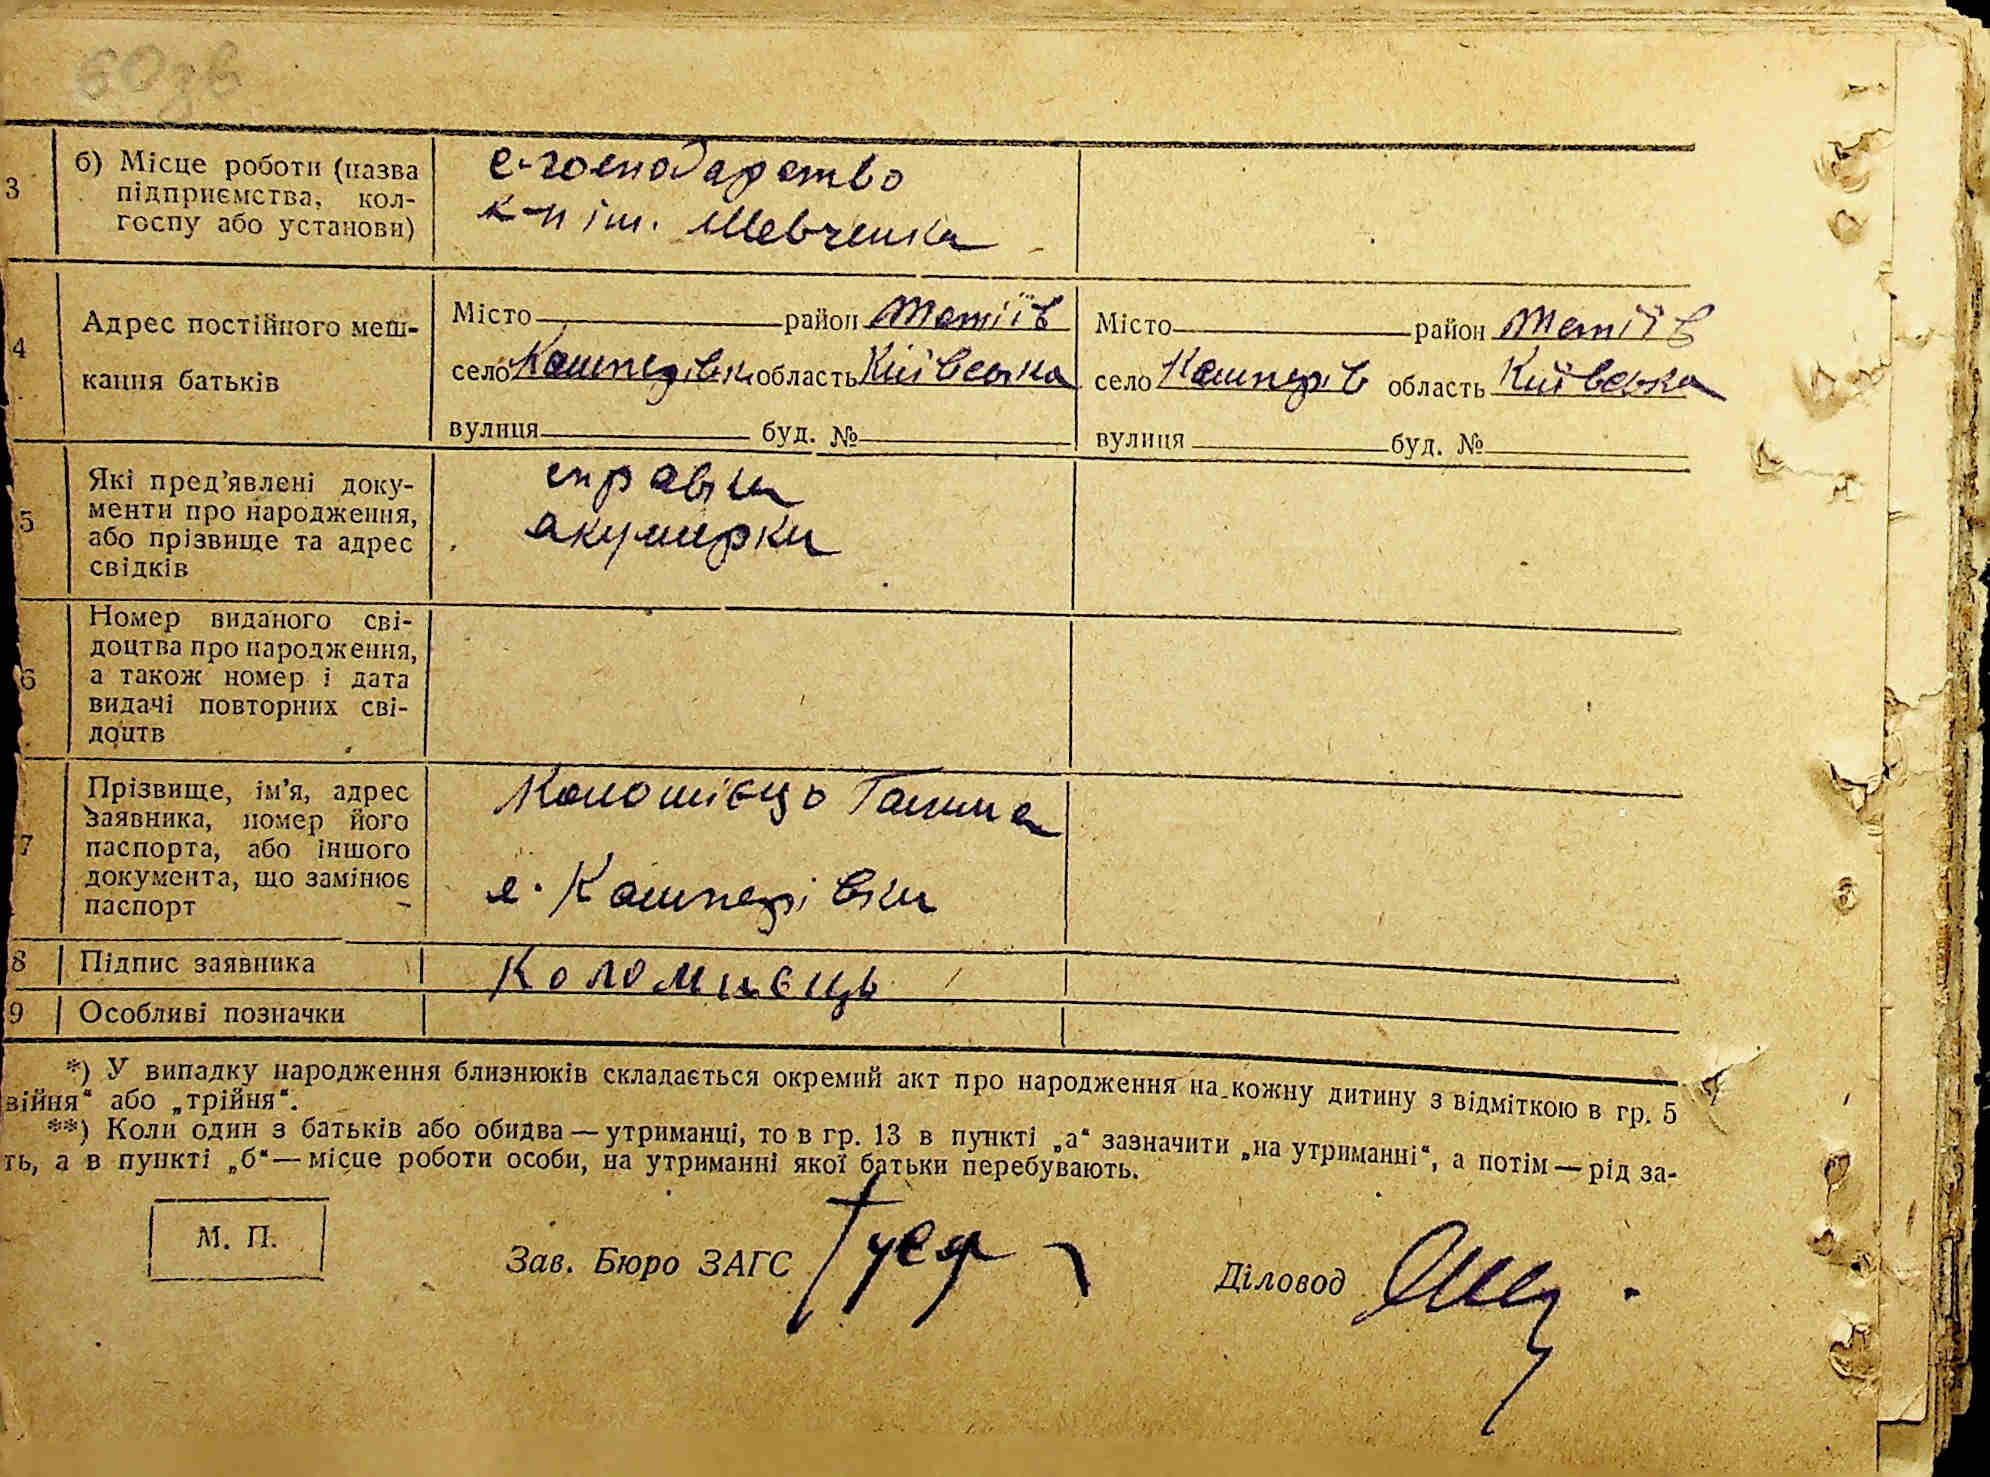 60зв
3
б) Місце роботи (назва
підприємства, кол-
госпу або установи)
с-господарство
к-п ім. Шевченка
4
Адрес постійного меш-
кання батьків
Місто район Тетіїв
село Кашперівк область Київська
вулиця буд. №
Місто район Тетіїв
село Кашперів область Київська
вулиця буд. №
5
Які пред’явлені доку-
менти про народження,
або прізвище та адрес
свідків
справки
акушерки
6
Номер виданого сві-
доцтва про народження,
а також номер і дата
видачі повторних сві-
доцтв
7
Прізвище, ім’я, адрес
заявника, номер його
паспорта, або іншого
документа, що замінює
паспорт
Коломієць Ганна
с. Кашперівки
8 Підпис заявника
Коломиєць
9 Особливі позначки
*) У випадку народження близнюків складається окремий акт про народження на кожну дитину з відміткою в гр. 5
війня“ або „трійня“.
**) Коли один з батьків або обидва — утриманці, то в гр. 13 в пункті „а“ зазначити „на утриманні“, а потім — рід за-
ть, а в пункті „б“ — місце роботи особи, на утриманні якої батьки перебувають.
М. П.
Зав. Бюро ЗАГС
Діловод